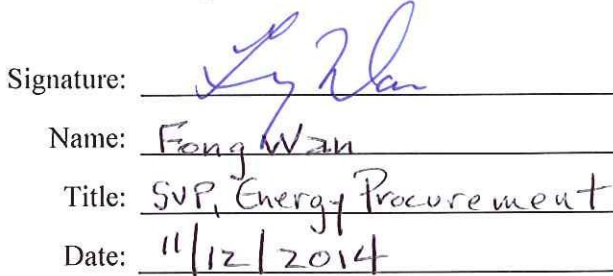 Signature: Fong Wan
Name: Fong Wan
Title: SVP, Energy Procurement
Date: 11/12/2014